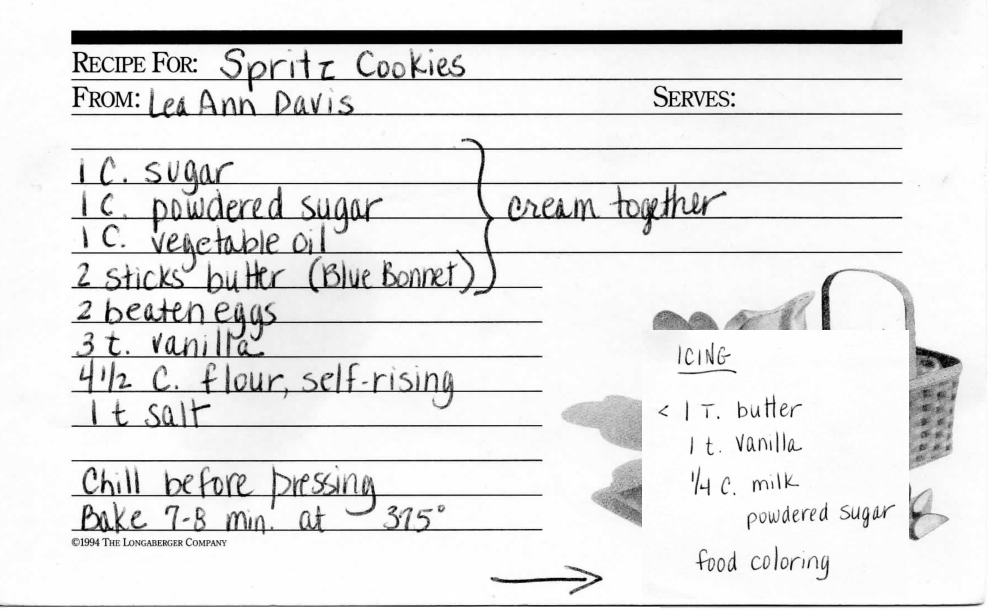 RECIPE FOR: Spritz Cookies
FROM: Lea Ann Davis SERVES:
1 C. sugar
1 C. powdered sugar
1 C. vegetable oil
2 sticks butter (Blue Bonnet)
cream together
2 beaten eggs
3 t. vanilla
4 1/2 C. flour, self-rising
1 t salt
Chill before pressing
Bake 7-8 min. at 375°
©1994 THE LONGABERGER COMPANY
ICING
< 1 T. butter
1 t. vanilla
1/4 C. milk
powdered sugar
food coloring